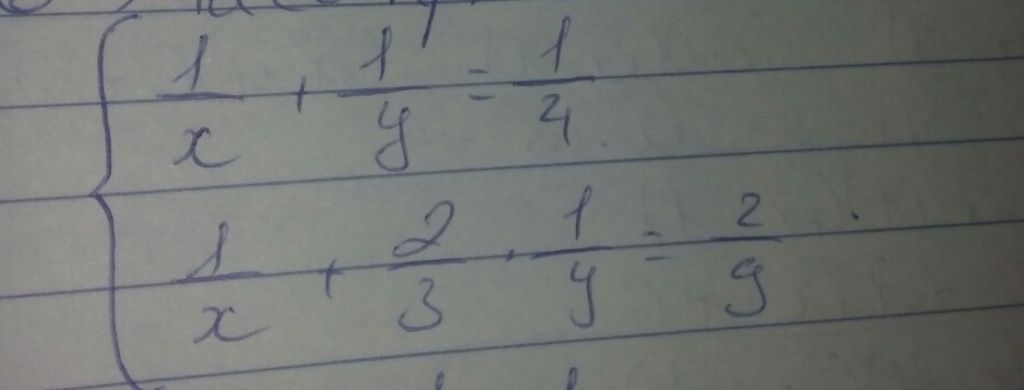 1/x + 1/y = 1/4
1/x + 2/3 · 1/y = 2/9